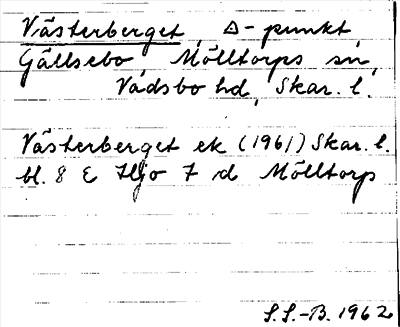 Västerberget, Δ-punkt,
Gällsebo Mölltorps sn,
Vadsbo hd, Skar. l.
Västerberget ek (1961) Skar. l.
bl. 8 E Hjo 7 d Mölltorp
S.S.-B. 1962